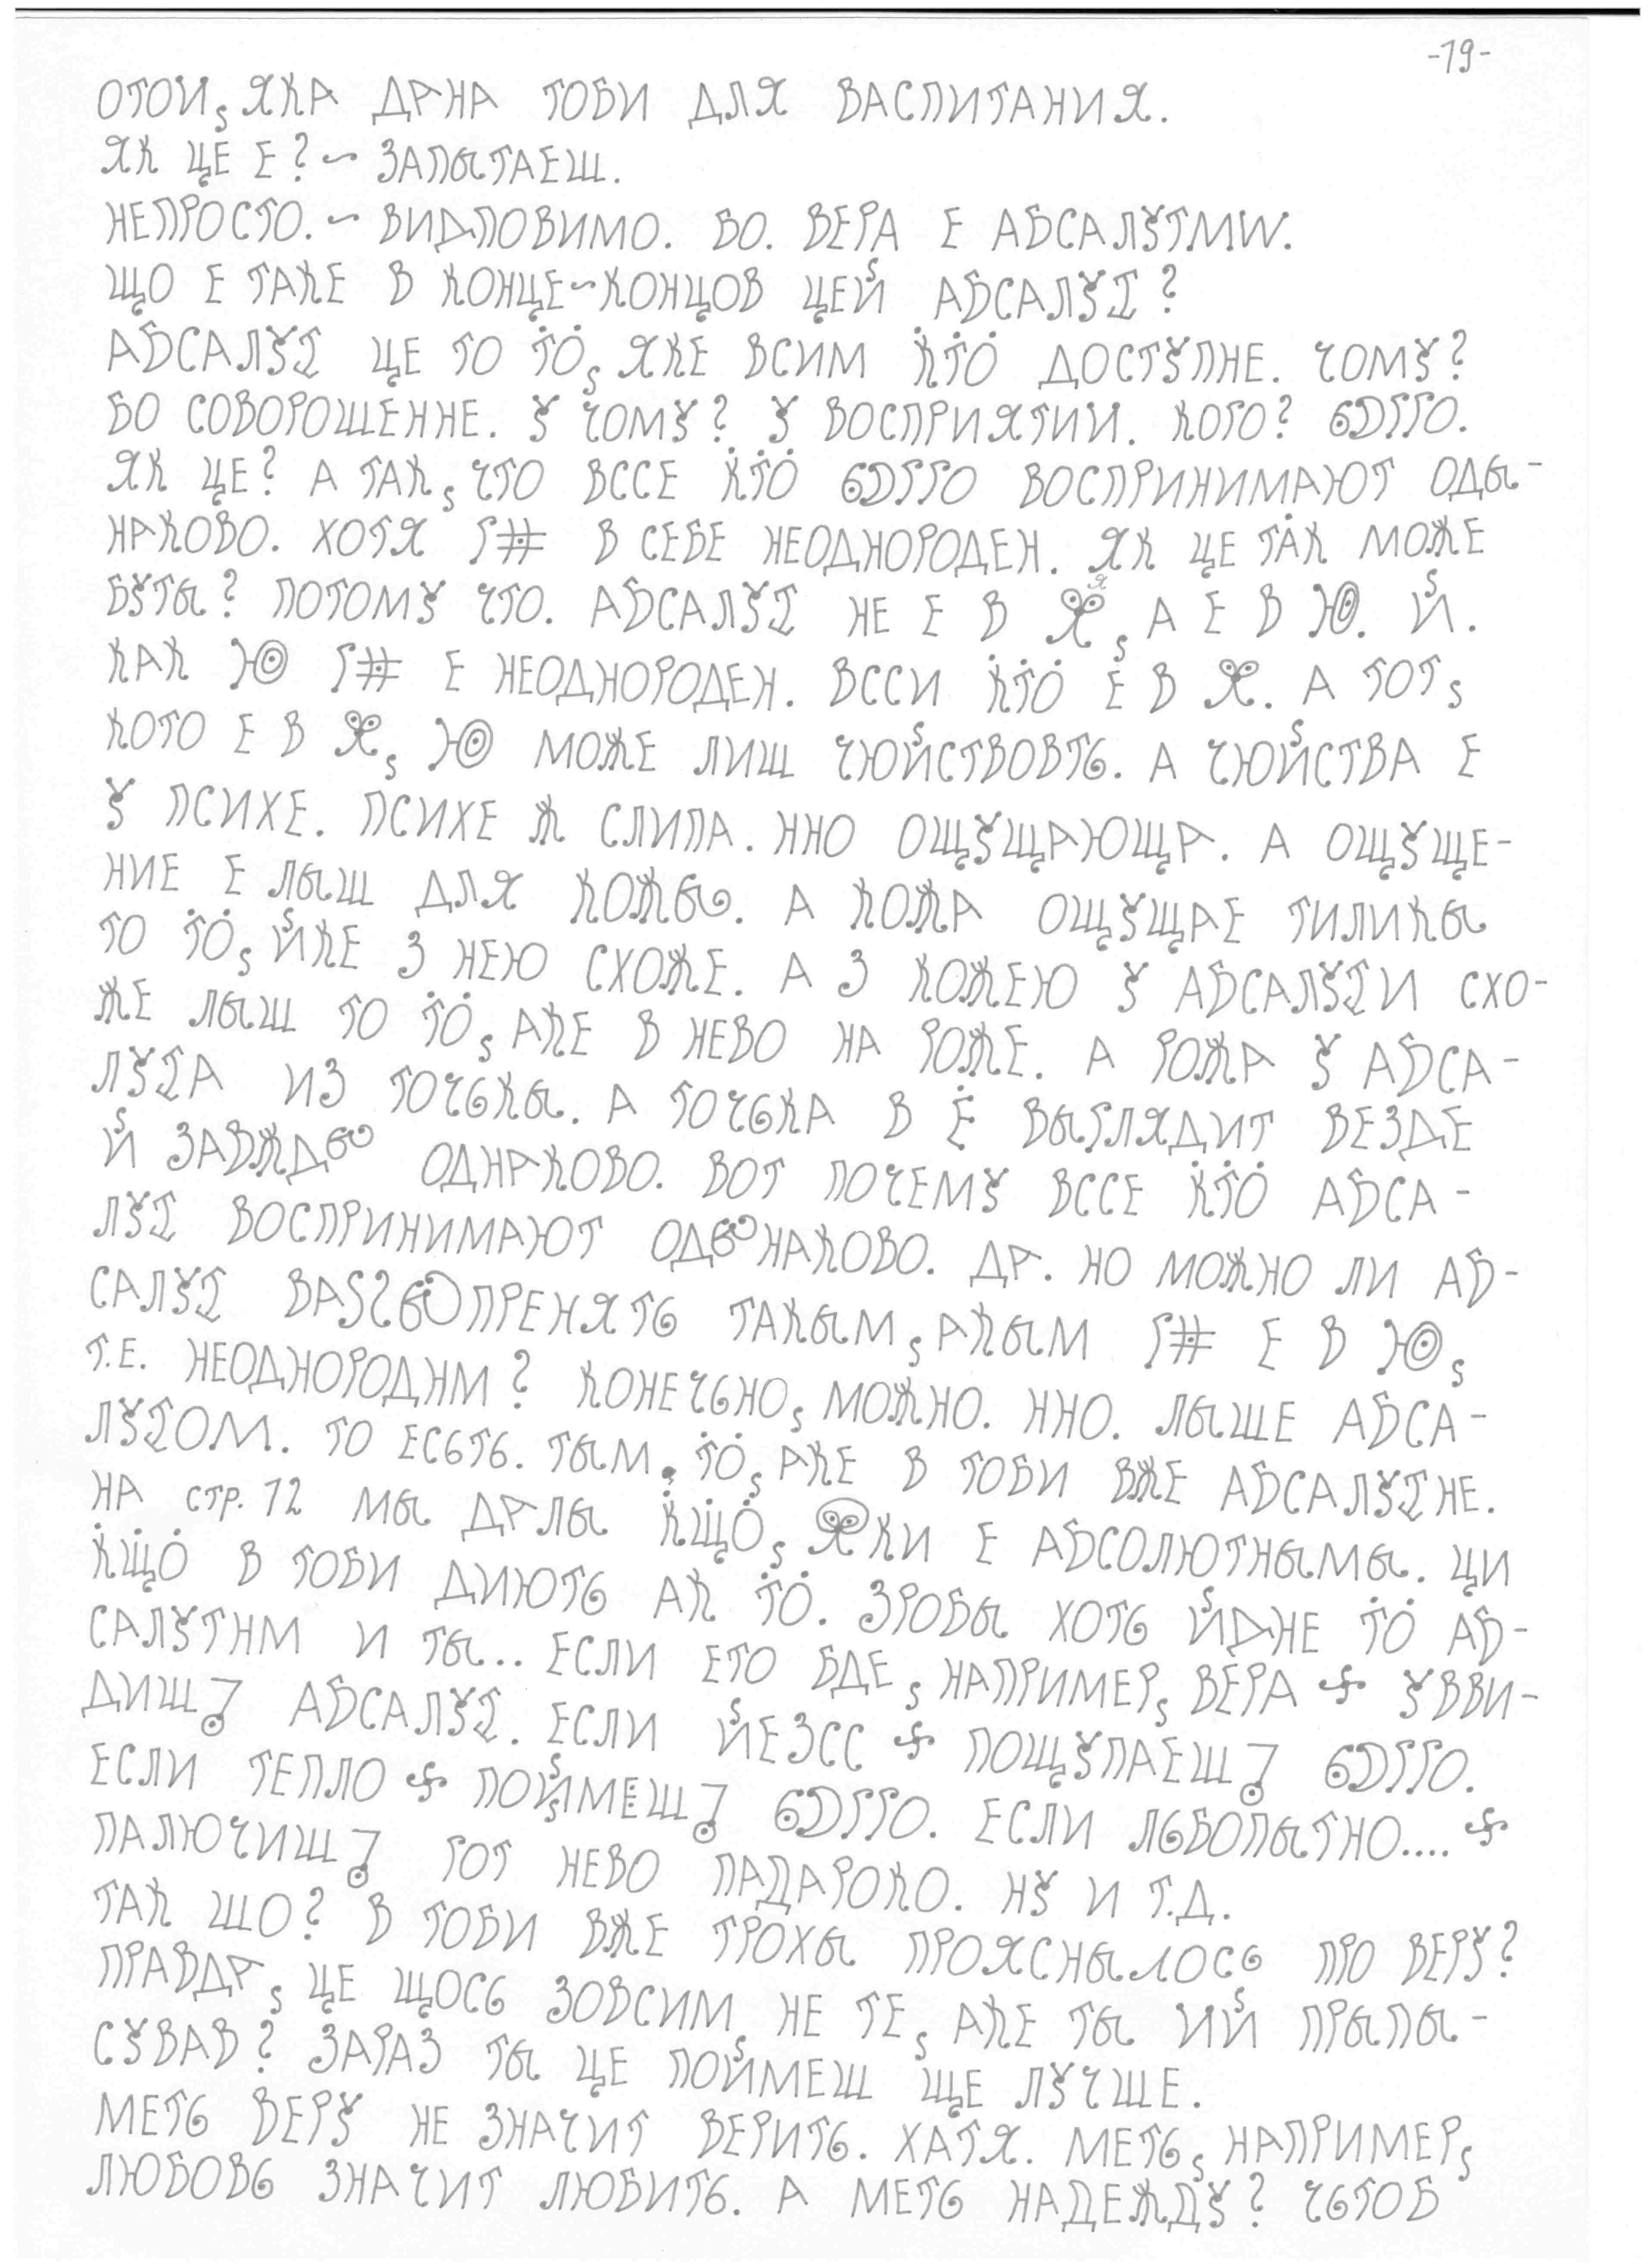 -19-
ОТОИ, ЯКА ДАНА ТОБИ ДЛЯ ВАСПИТАНИЯ.
ЯК ЦЕ Е? ~ ЗАПЫТАЕШ.
НЕПРОСТО. ~ ВИДПОВИМО. БО. ВЕРА Е АБСАЛУТМИ.
ЩО Е ТАКЕ В КОНЦЕ~КОНЦОВ ЦЕЙ АБСАЛУТ?
АБСАЛУТ ЦЕ ТО ТО, ЯКЕ ВСИМ КТО ДОСТУПНЕ. ЧОМУ?
БО СОВОРОШЕННЕ. У ЧОМУ? У ВОСПРИЯТИИ. КОГО?
ЯК ЦЕ? А ТАК, ЧТО ВССЕ КТО ВОСПРИНИМАЮТ ОДЫ-
НАКОВО. ХОТЯ В СЕБЕ НЕОДНОРОДЕН. ЯК ЦЕ ТАК МОЖЕ
БУТЫ? ПОТОМУ ЧТО. АБСАЛУТ НЕ Е В Я, А Е В Ю. Й.
КАК Ю Е НЕОДНОРОДЕН. ВССИ КТО Е В Я. А ТОТ,
КОТО Е В Я, Ю МОЖЕ ЛИШ ЧЮЙСТВОВТЬ. А ЧЮЙСТВА Е
У ПСИХЕ. ПСИХЕ Ж СЛИПА. ННО ОЩУЩАЮЩА. А ОЩУЩЕ-
НИЕ Е ЛЫШ ДЛЯ КОЖЫ. А КОЖА ОЩУЩАЕ ТИЛИКЫ
ТО ТО, ЙКЕ З НЕЮ СХОЖЕ. А З КОЖЕЮ У АБСАЛУТИ СХО-
ЖЕ ЛЫШ ТО ТО, АКЕ В НЕВО НА РОЖЕ. А РОЖА У АБСА-
ЛУТА ИЗ ТОЧЬКЫ. А ТОЧЬКА В Ё ВЫГЛЯДИТ ВЕЗДЕ
Й ЗАВЖДЫ ОДНАКОВО. ВОТ ПОЧЕМУ ВССЕ КТО АБСА-
ЛУТ ВОСПРИНИМАЮТ ОДЫНАКОВО. ДА. НО МОЖНО ЛИ АБ-
САЛУТ ТАКЫМ, АКЫМ Е В Ю,
Т.Е. НЕОДНОРОДНМ? КОНЕЧЬНО, МОЖНО. ННО. ЛЫШЕ АБСА-
ЛУТОМ. ТО ЕСЬТЬ. ТЫМ. ТО, АКЕ В ТОБИ ВЖЕ АБСАЛУТНЕ.
НА СТР. 12 МЫ ДАЛЫ КЩО, ЯКИ Е АБСОЛЮТНЫМЫ. ЦИ
КЩО В ТОБИ ДИЮТЬ АК ТО. ЗРОБЫ ХОТЬ ЙДНЕ ТО АБ-
САЛУТНМ И ТЫ.. ЕСЛИ ЕТО БДЕ, НАПРИМЕР, ВЕРА 卐 УВВИ-
ДИШ АБСАЛУТ. ЕСЛИ ЙЕЗСС 卐 ПОЩУПАЕШ
ЕСЛИ ТЕПЛО 卐 ПОЙМЕШ ЕСЛИ ЛЬБОПЫТНО.... 卐
ПАЛЮЧИШ ТОТ НЕВО ПАДАРОКО. НУ И Т.Д.
ТАК ШО? В ТОБИ ВЖЕ ТРОХЫ ПРОЯСНЫЛОСЬ ПРО ВЕРУ?
ПРАВДА, ЦЕ ЩОСЬ ЗОВСИМ НЕ ТЕ, АКЕ ТЫ ИЙ ПРЫПЫ-
СУВАВ? ЗАРАЗ ТЫ ЦЕ ПОЙМЕШ ЩЕ ЛУЧШЕ.
МЕТЬ ВЕРУ НЕ ЗНАЧИТ ВЕРИТЬ. ХАТЯ. МЕТЬ, НАПРИМЕР,
ЛЮБОВЬ ЗНАЧИТ ЛЮБИТЬ. А МЕТЬ НАДЕЖДУ? ЧЬТОБ